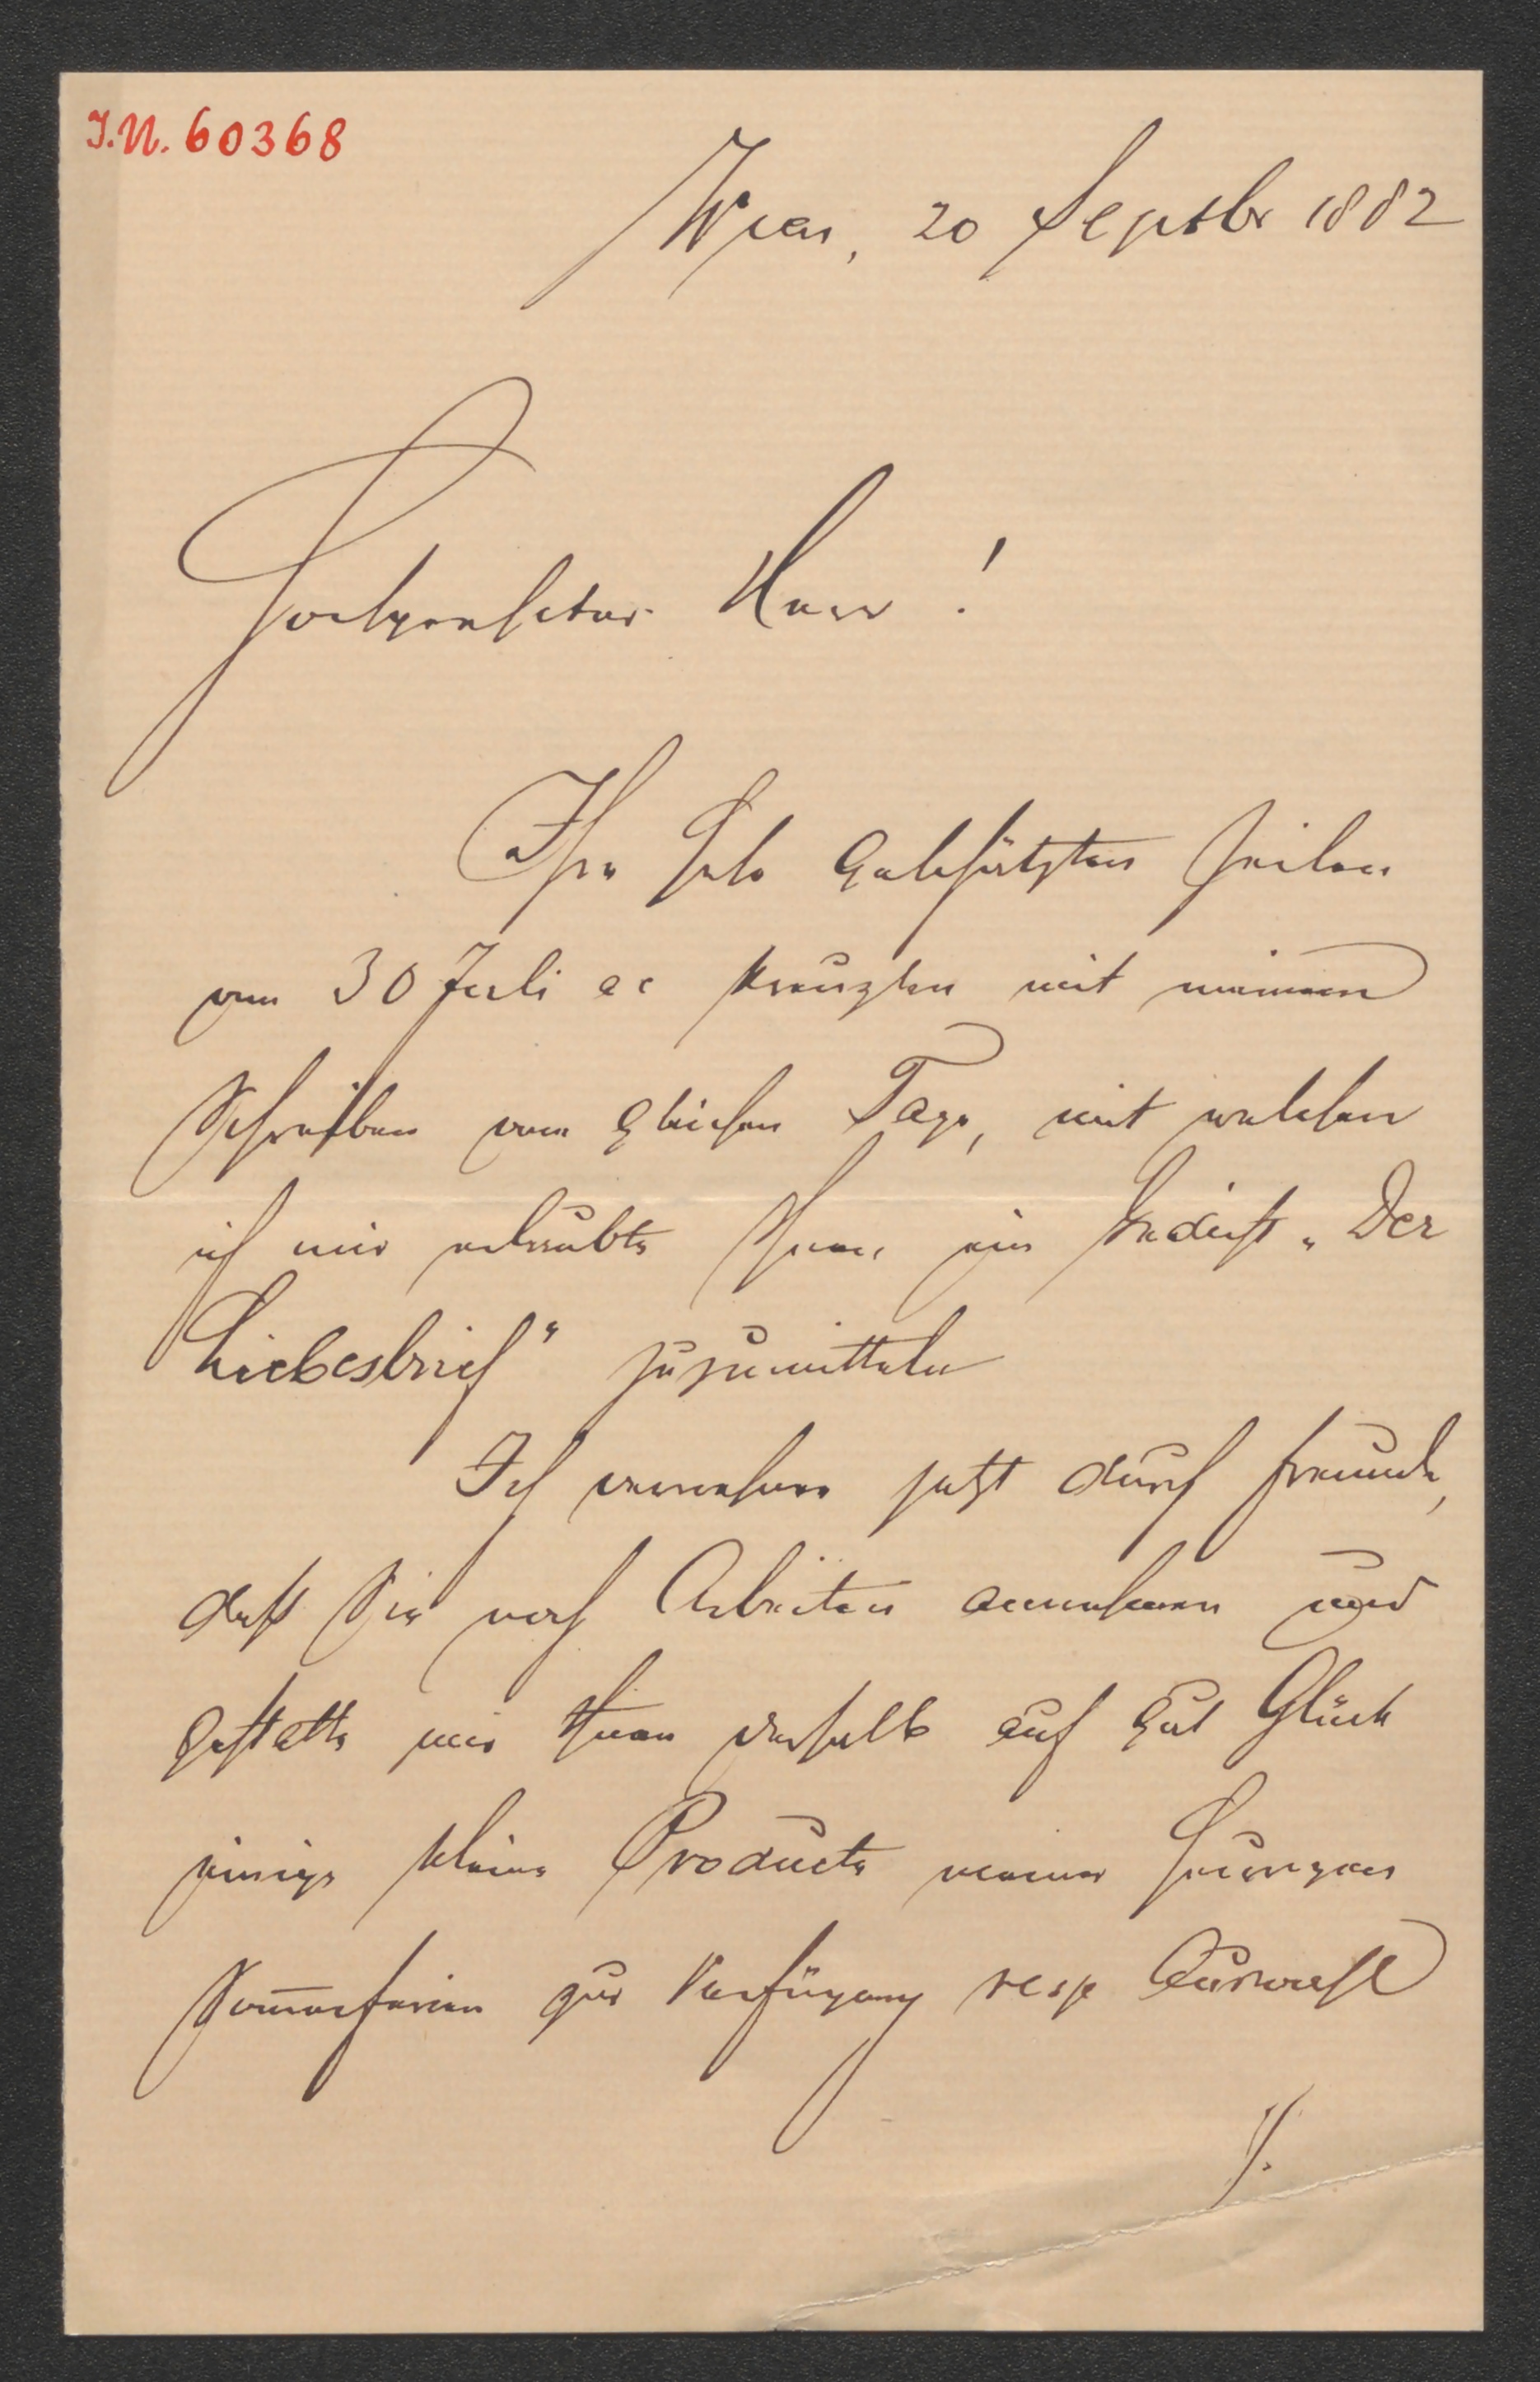 I.N. 60368
Wien, 20 Septbr 1882
Hochgeehrter Herr!
Ihre sehr geschätzten Zeilen
vom 30 Juli ac kreuzten mit meinem
Schreiben vom gleichen Tage, mit welchem
ich mir erlaubte Ihnen ein Gedicht „Der
Liebesbrief" zuzumitteln
Ich vernehme jetzt durch Freunde,
daß Sie noch Arbeiten annehmen und
gestatte mir Ihnen deshalb auf gut Glück
einige kleine Producte meiner heurigen
Som̅erferien zur Verfügung resp Auswahl